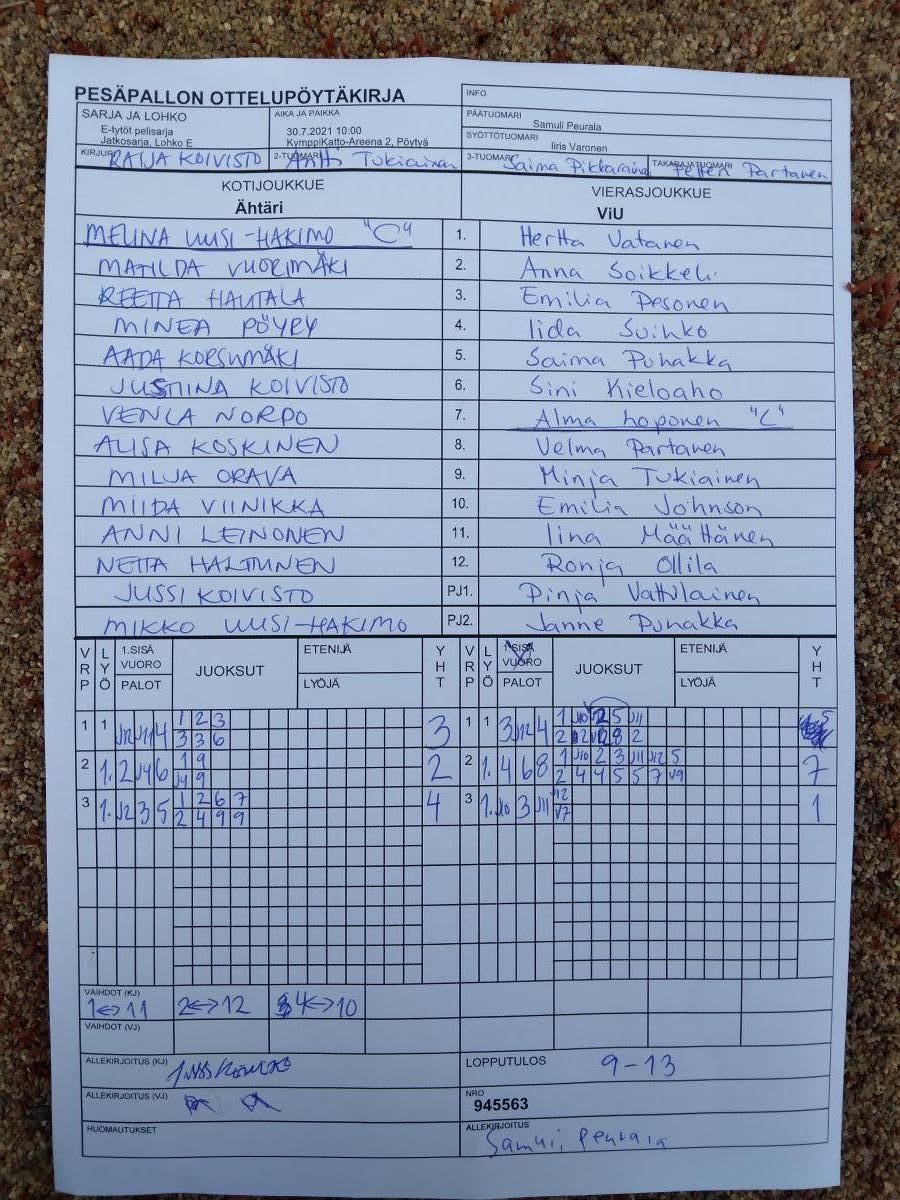 PESÄPALLON OTTELUPÖYTÄKIRJA
INFO
SARJA JA LOHKO
E-tytöt pelisarja
Jatkosarja, Lohko E
AIKA JA PAIKKA
30.7.2021 10:00
KymppiKatto-Areena 2, Pöytyä
PÄÄTUOMARI
Samuli Peurala
SYÖTTÖTUOMARI
Iiris Varonen
KIRJURI RAIJA KOIVISTO
2-TUOMARI Antti Tukiainen
3-TUOMARI Saima Pikkarainen
TAKARAJATUOMARI Petteri Partanen
KOTIJOUKKUE
Ähtäri
VIERASJOUKKUE
ViU
MELINA UUSI-HAKIMO "C" 1. Hertta Vatanen
MATILDA VUORIMÄKI 2. Anna Soikkeli
REETTA HAUTALA 3. Emilia Pesonen
MINEA PÖYRY 4. Iida Suihko
AADA KORSUMÄKI 5. Saima Puhakka
JUSTIINA KOIVISTO 6. Sini Kieloaho
VENLA NORPO 7. Alma hoponen "C"
ALISA KOSKINEN 8. Velma Partanen
MILJA ORAVA 9. Minja Tukiainen
MIIDA VIINIKKA 10. Emilia Johnson
ANNI LEINONEN 11. Iina Määttänen
NETTA HALTUNEN 12. Ronja Ollila
JUSSI KOIVISTO PJ1. Pinja Vattulainen
MIKKO UUSI-HAKIMO PJ2. Janne Puhakka
VRP LYÖ 1.SISÄ VUORO PALOT JUOKSUT ETENIJÄ LYÖJÄ YHT
VRP LYÖ 1.SISÄ VUORO PALOT JUOKSUT ETENIJÄ LYÖJÄ YHT
1 1 J12 J11 4 1 2 3 3
3 3 6
1 1 3 J12 4 1 J10 2 5 J11 5
2 1. 2 J4 6 1 9 2
J4 9
2 1. 4 6 8 1 J10 2 3 J11 J12 5 7
2 4 4 5 5 7 V9
3 1. J2 3 5 1 2 6 7 4
2 4 9 9
3 1. J10 3 J11 J12 1
V7
VAIHDOT (KJ)
1<->11 2<->12 4<->10
VAIHDOT (VJ)
ALLEKIRJOITUS (KJ) Jussi Koivisto
LOPPUTULOS 9-13
ALLEKIRJOITUS (VJ)
NRO
945563
HUOMAUTUKSET
ALLEKIRJOITUS
Samuli Peurala